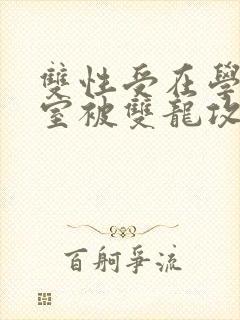 雙性受在學
室被雙龍攻
百舸爭流